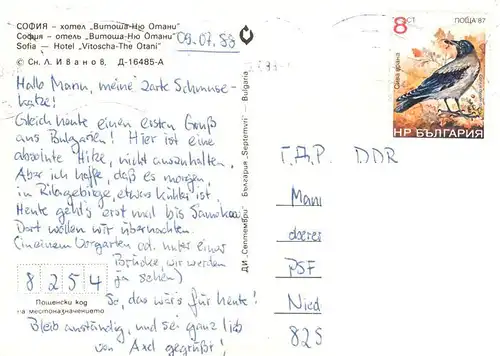 СОФИЯ – хотел „Витоша-Ню Отани"
София – отель „Витоша-Ню Отани"
Sofia – Hotel „Vitoscha-The Otani"
09.07.88
© Сн. Л. Иванов, Д-16485-А
Hallo Mann, meine zarte Schmuse-
katze!
Gleich heute einen ersten Gruß
aus Bulgarien! Hier ist eine
absolute Hitze, nicht auszuhalten.
Aber ich hoffe, daß es morgen
im Rilagebirge, etwas kühler ist.
Heute geht's erst mal bis Samokov.
Dort wollen wir übernachten.
(In einem Vorgarten od. unter einer
Brücke, wir werden
ja sehen)
8 2 5 4
Пощенски код
на местоназначението
So, das wär's für heute!
Bleib anständig, und sei ganz lieb
von Axel gegrüßt!
ДИ „Септември" България „Septemvri" – Bulgaria
8 СТ
ПОЩА '87
Сива врана
НР БЪЛГАРИЯ
Г.Д.Р. DDR
PSF
Nied
825